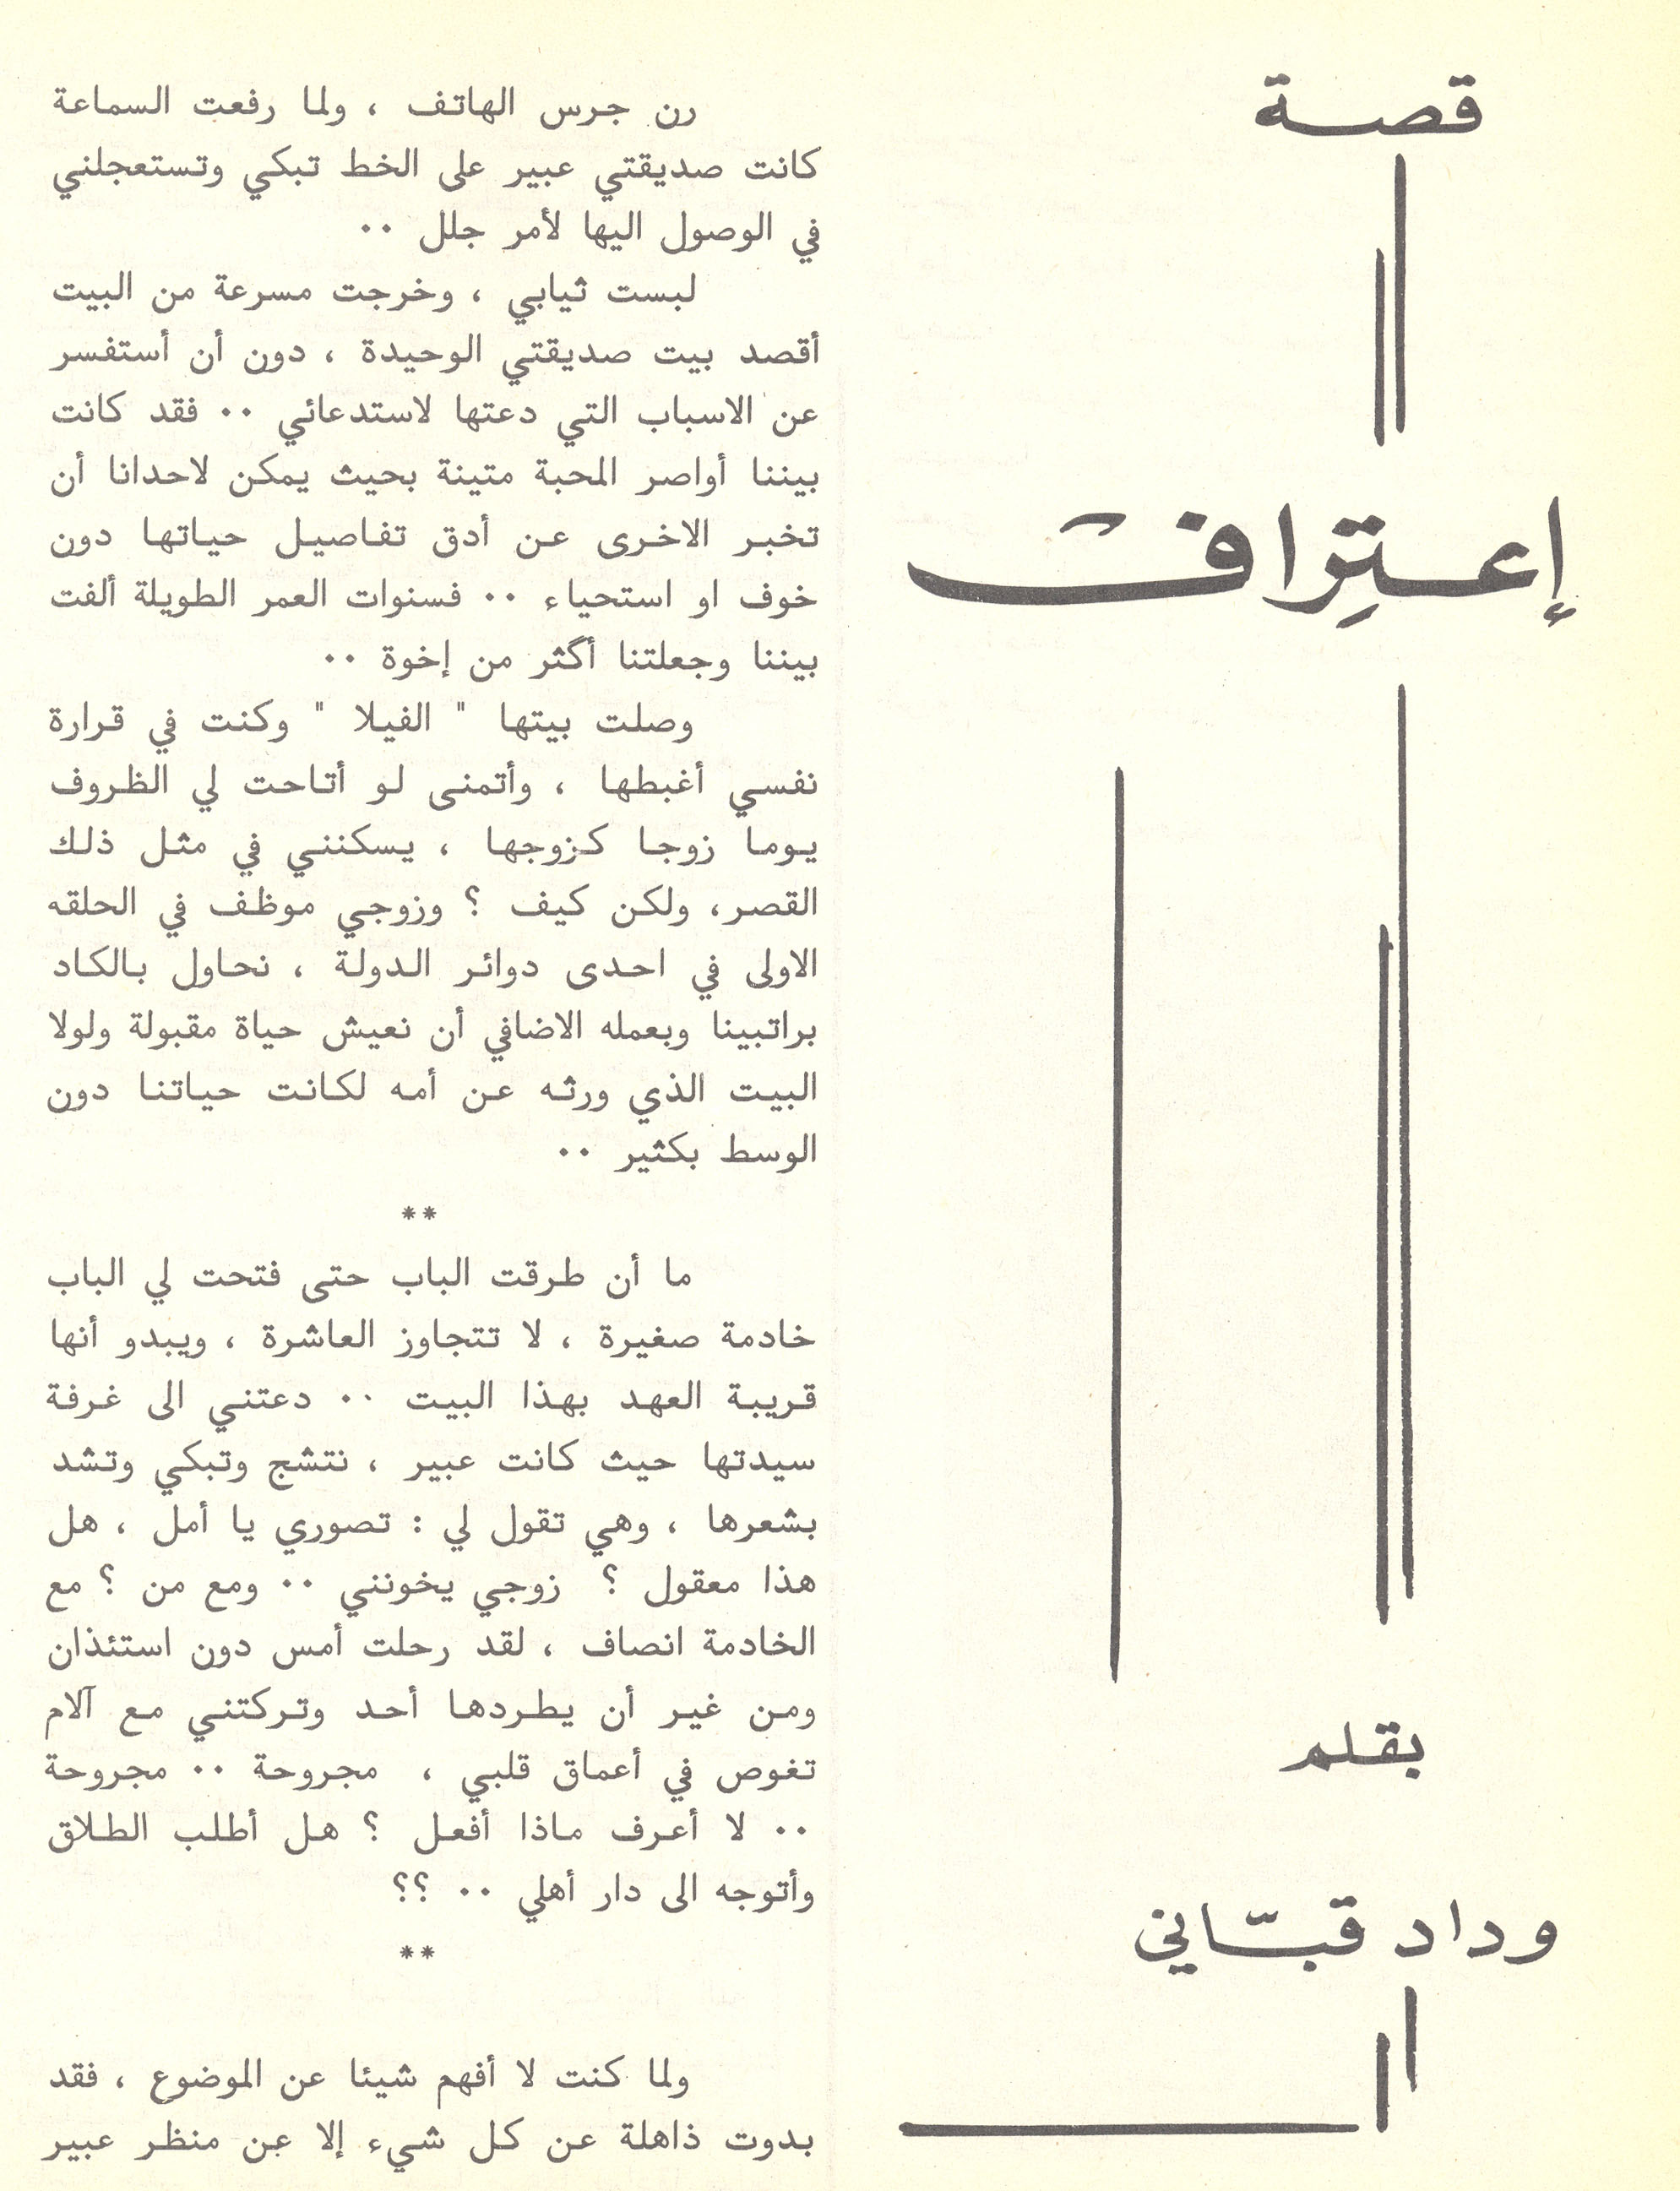 قصة
إعترِاف
بقلم
وداد قبّاني
رن جرس الهاتف ، ولما رفعت السماعة
كانت صديقتي عبير على الخط تبكي وتستعجلني
في الوصول اليها لأمر جلل ۰۰
لبست ثيابي ، وخرجت مسرعة من البيت
أقصد بيت صديقتي الوحيدة ، دون أن أستفسر
عن الاسباب التي دعتها لاستدعائي ۰۰ فقد كانت
بيننا أواصر المحبة متينة بحيث يمكن لاحدانا أن
تخبر الاخرى عن أدق تفاصيل حياتها دون
خوف او استحياء ۰۰ فسنوات العمر الطويلة ألفت
بيننا وجعلتنا أكثر من إخوة ۰۰
وصلت بيتها " الفيلا " وكنت في قرارة
نفسي أغبطها ، وأتمنى لو أتاحت لي الظروف
يوما زوجا كزوجها ، يسكنني في مثل ذلك
القصر، ولكن كيف ؟ وزوجي موظف في الحلقه
الاولى في احدى دوائر الدولة ، نحاول بالكاد
براتبينا وبعمله الاضافي أن نعيش حياة مقبولة ولولا
البيت الذي ورثه عن أمه لكانت حياتنا دون
الوسط بكثير ۰۰
**
ما أن طرقت الباب حتى فتحت لي الباب
خادمة صغيرة ، لا تتجاوز العاشرة ، ويبدو أنها
قريبة العهد بهذا البيت ۰۰ دعتني الى غرفة
سيدتها حيث كانت عبير ، نتشج وتبكي وتشد
بشعرها ، وهي تقول لي : تصوري يا أمل ، هل
هذا معقول ؟ زوجي يخونني ۰۰ ومع من ؟ مع
الخادمة انصاف ، لقد رحلت أمس دون استئذان
ومن غير أن يطردها أحد وتركتني مع آلام
تغوص في أعماق قلبي ، مجروحة ۰۰ مجروحة
۰۰ لا أعرف ماذا أفعل ؟ هل أطلب الطلاق
وأتوجه الى دار أهلي ۰۰ ؟؟
**
ولما كنت لا أفهم شيئا عن الموضوع ، فقد
بدوت ذاهلة عن كل شيء إلا عن منظر عبير